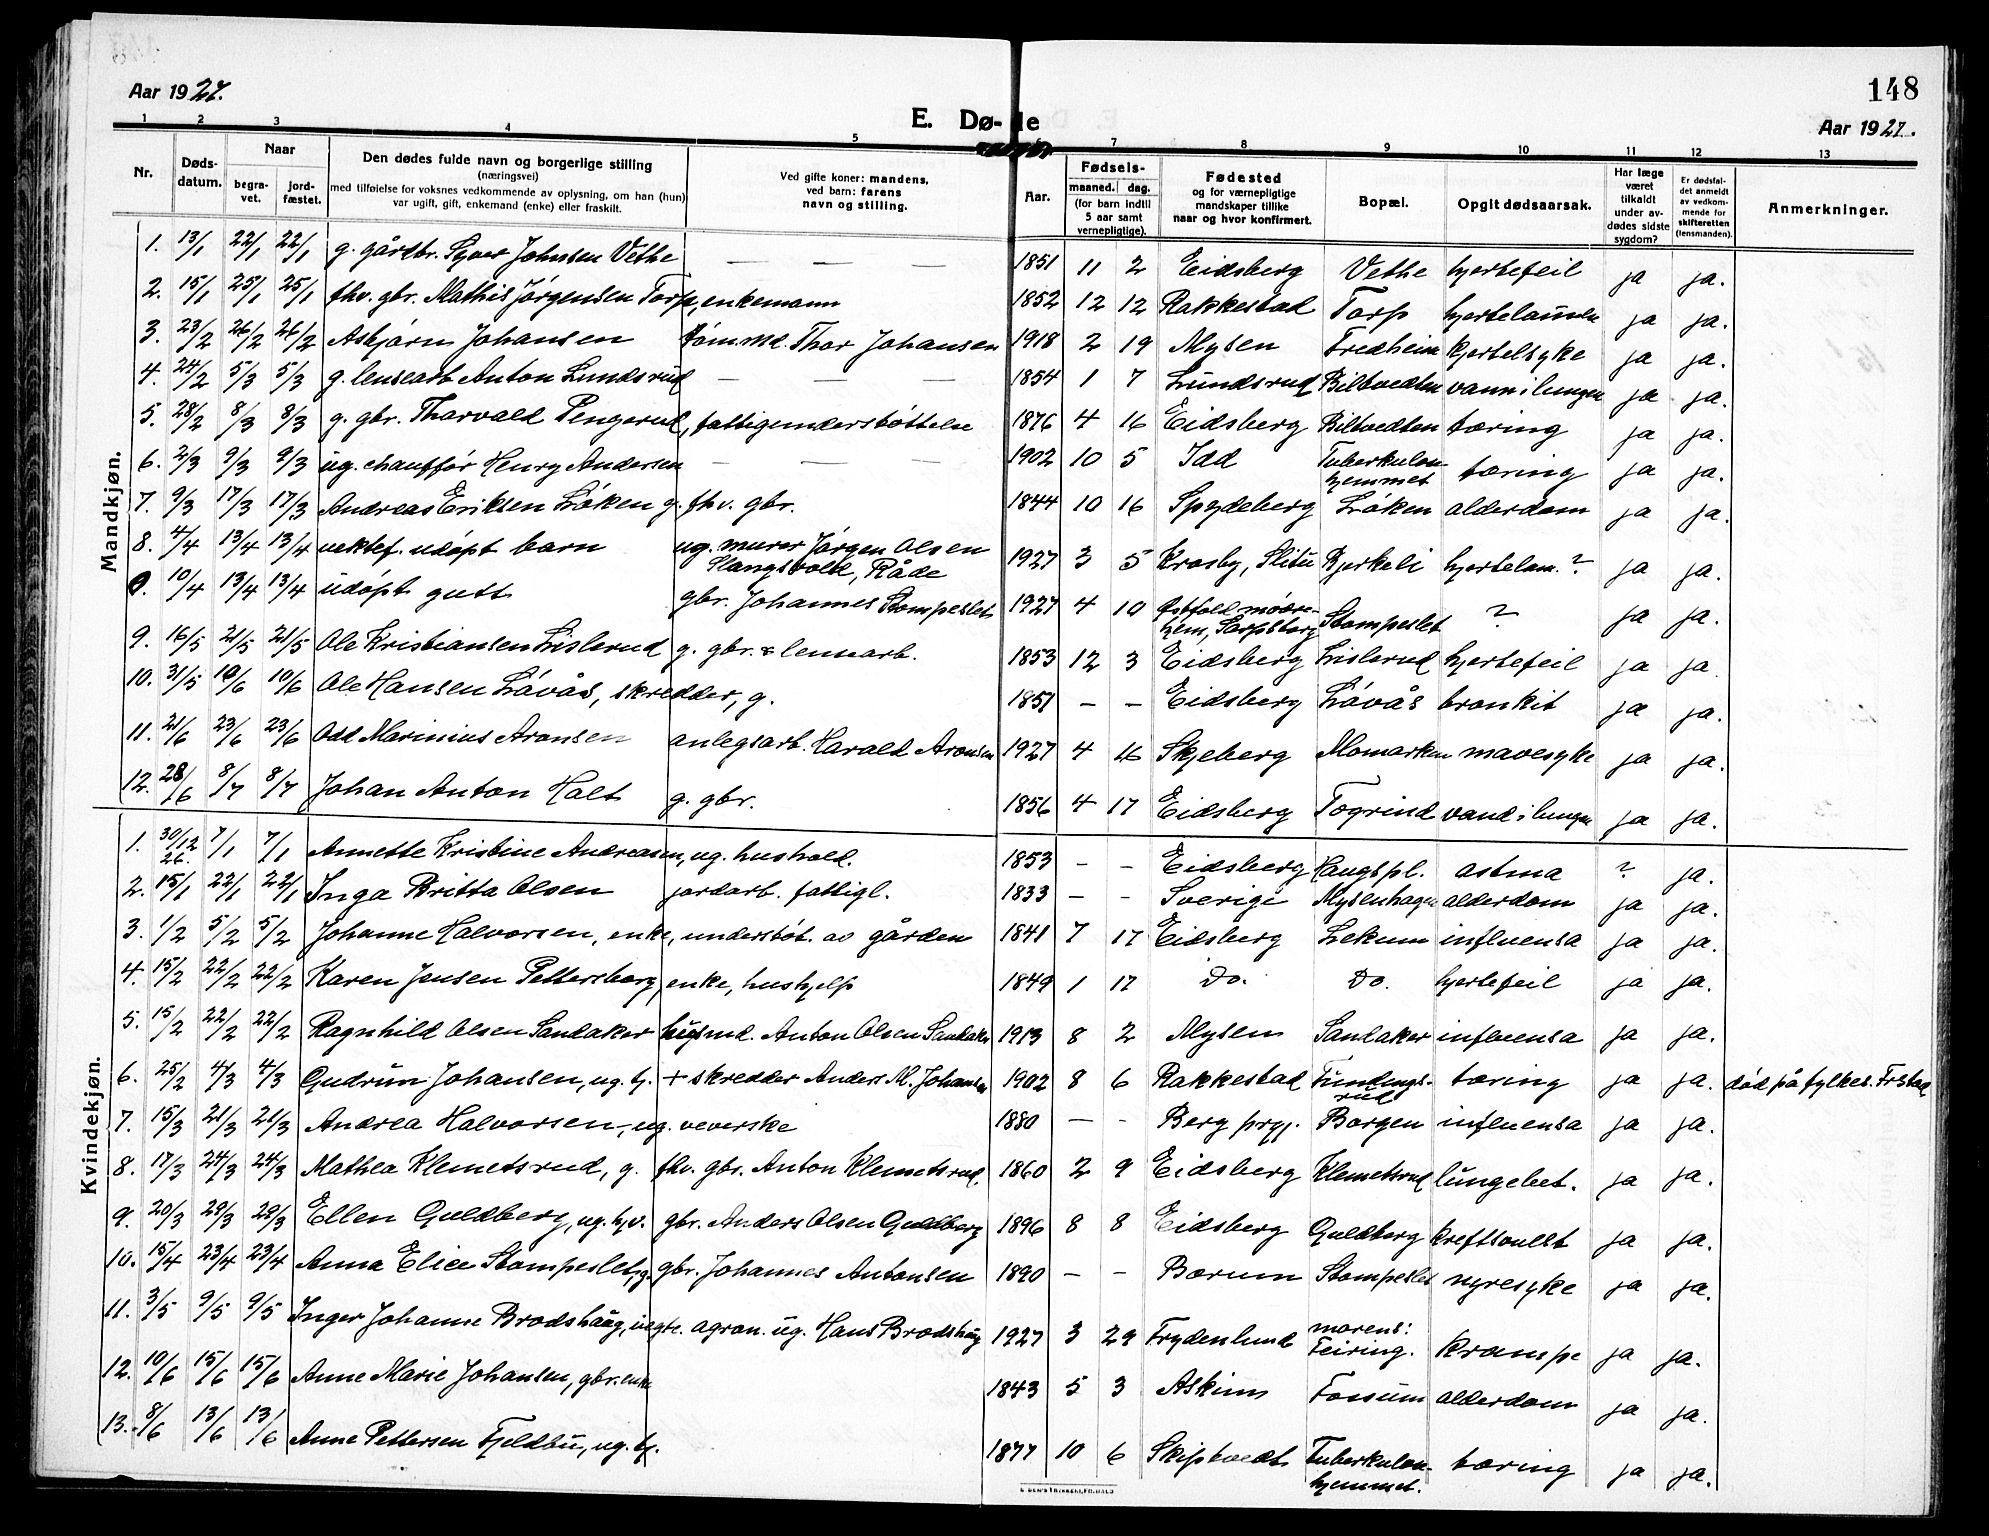 148
Aar 1927.
E. Dø- de
Aar 1927.
1 2 3 4 5 7 8 9 10 11 12 13
Nr. Døds-datum. Naar begra-vet. jord-fæstet. Den dødes fulde navn og borgerlige stilling (næringsvei) med tilføielse for voksnes vedkommende av oplysning, om han (hun) var ugift, gift, enkemand (enke) eller fraskilt. Ved gifte koner: mandens, ved barn: farens navn og stilling. Aar. Fødsels- maaned. dag. (for barn indtil 5 aar samt vernepligtige). Fødested og for værnepligtige mandskaper tillike naar og hvor konfirmert. Bopæl. Opgit dødsaarsak. Har læge været tilkaldt under av-dødes sidste sygdom? Er dødsfal-det anmeldt av vedkom-mende for skifteretten (lensmanden). Anmerkninger.
Mandkjøn.
1. 13/1 22/1 22/1 g. gårdbr. Syver Johnsen Vethe — — — 1851 11 2 Eidsberg Vethe hjertefeil ja ja.
2. 15/1 25/1 25/1 fhv. gbr. Mathis Jörgensen Torp, enkemann 1852 12 12 Rakkestad Torp hjertelammelse ja ja.
3. 23/2 26/2 26/2 Asbjørn Johansen tömmd. Thor Johansen 1918 2 19 Mysen Fredheim kjertelsyke ja ja.
4. 24/2 5/3 5/3 g. lensearb Anton Lundsrud — — — 1854 1 7 Lundsrud Biltvedten vann i lungen ja ja.
5. 28/2 8/3 8/3 g. gbr. Thorvald Pengerud, fattigunderstøttelse 1876 4 16 Eidsberg Biltvedten tæring ja ja.
6. 2/3 9/3 9/3 ug. chauffør Henry Andersen — — — 1902 10 5 Idd Tuberkulosehjemmet tæring ja ja.
7. 9/3 17/3 17/3 Andreas Eriksen Løken g. fhv. gbr. 1844 10 16 Spydeberg Løken alderdom ja ja.
8. 4/4 13/4 13/4 uektef. udöpt barn ug. murer Jørgen Olsen Slangsvold, Råde 1927 3 5 Krosby, Slitu Bjerkeli hjertelam.? ja ja.
10/4 13/4 13/4 udöpt gutt gbr. Johannes Stompeslet 1927 4 10 Østfold mødrehjem, Sarpsborg Stompeslet ? ja ja.
9. 16/5 21/5 21/5 Ole Kristiansen Lislerud g. gbr. & lensearb. 1853 12 3 Eidsberg Lislerud hjertefeil ja ja.
10. 31/5 10/6 10/6 Ole Hansen Løvås, skredder, g. 1851 — — Eidsberg Løvås bronkit ja ja.
11. 21/6 23/6 23/6 Odd Marinius Aronsen anlegsarb. Harald Aronsen 1927 4 16 Skjeberg Momarken mavesyke ja ja.
12. 28/6 8/7 8/7 Johan Anton Holt g. gbr. 1856 4 17 Eidsberg Togrind vand i lungen ja ja.
Kvindekjøn.
1. 30/12 26. 7/1 7/1 Annette Kristine Andreasen, ug. hushold. 1853 — — Eidsberg Haugspl. astma ? ja.
2. 15/1 22/1 22/1 Inga Britta Olsen jordarb. fattigl. 1833 — — Sverige Mysenhagen alderdom ja ja.
3. 1/2 5/2 5/2 Johanne Halvorsen, enke, understöt. av gården 1841 7 17 Eidsberg Lekum influensa ja ja.
4. 15/2 22/2 22/2 Karen Jensen Pettersborg, enke, hushjelp 1849 1 17 Do. Do. hjertefeil ja ja.
5. 15/2 22/2 22/2 Ragnhild Olsen Sandaker husmd. Anton Olsen Sandaker 1913 8 2 Mysen Sandaker influensa ja ja.
6. 25/2 4/3 4/3 Gudrun Johansen, ug. tj. + skredder Anders M. Johansen 1902 8 6 Rakkestad Fundingsrud tæring ja ja. död på fylkes. Frstad
7. 15/3 21/3 21/3 Andrea Halvorsen, ug. veverske 1880 — — Berg prgj. Borgen influensa ja ja.
8. 17/3 24/3 24/3 Mathea Klemetsrud, g. fhv. gbr. Anton Klemetsrud. 1860 2 9 Eidsberg Klemetsrud lungebet. ja ja.
9. 20/3 29/3 29/3 Ellen Guldberg, ug. hjv. gbr. Anders Olsen Guldberg 1896 8 8 Eidsberg Guldberg kreftsvulst ja ja.
10. 15/4 23/4 23/4 Anna Elise Stompeslet, g. gbr. Johannes Antonsen 1890 — — Bærum Stompeslet nyresyke ja ja.
11. 3/5 9/5 9/5 Inger Johanne Brodshaug, uegte. agron. ug. Hans Brodshaug 1927 3 29 Frydenlund morens: Feiring. krampe ja ja.
12. 10/6 15/6 15/6 Anne Marie Johansen, gbr. enke 1843 5 3 Askim Fossum alderdom ja ja.
13. 8/6 13/6 13/6 Anne Pettersen Fjeldbu, ug. tj. 1877 10 6 Skiptvedt Tuberkulosehjemmet. tæring ja ja.